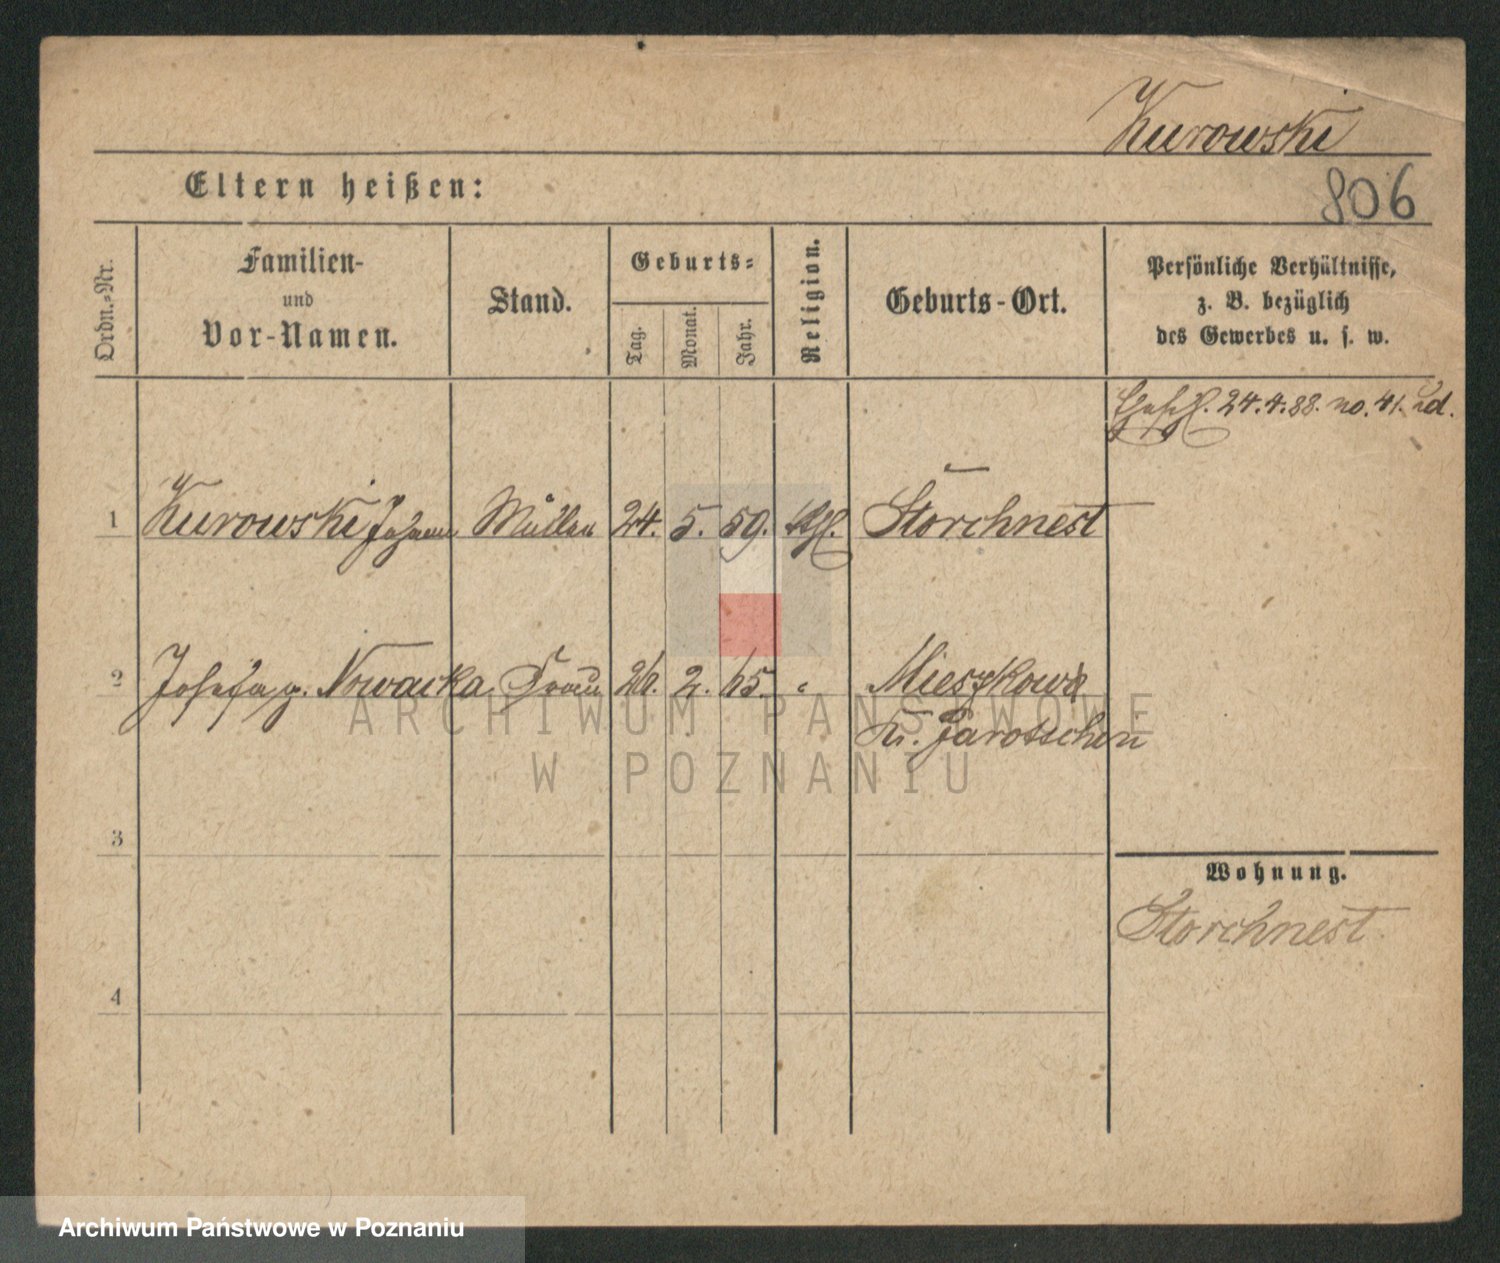 Kurowski
Eltern heißen:
806
Ordn.=Nr.
Familien-
und
Vor-Namen.
Stand.
Geburts=
Tag.
Monat.
Jahr.
Religion.
Geburts-Ort.
Persönliche Verhältnisse,
z. B. bezüglich
des Gewerbes u. s. w.
24.4.88. no. 41.
1 Kurowski Johann Müller 24. 5. 59. Kth. Storchnest
2 Josefa g. Nowacka Frau 2. 65. " Mieszkowo
Kr. Jarotschen
3
Wohnung.
Storchnest
4
ARCHIWUM PAŃSTWOWE
W POZNANIU
Archiwum Państwowe w Poznaniu